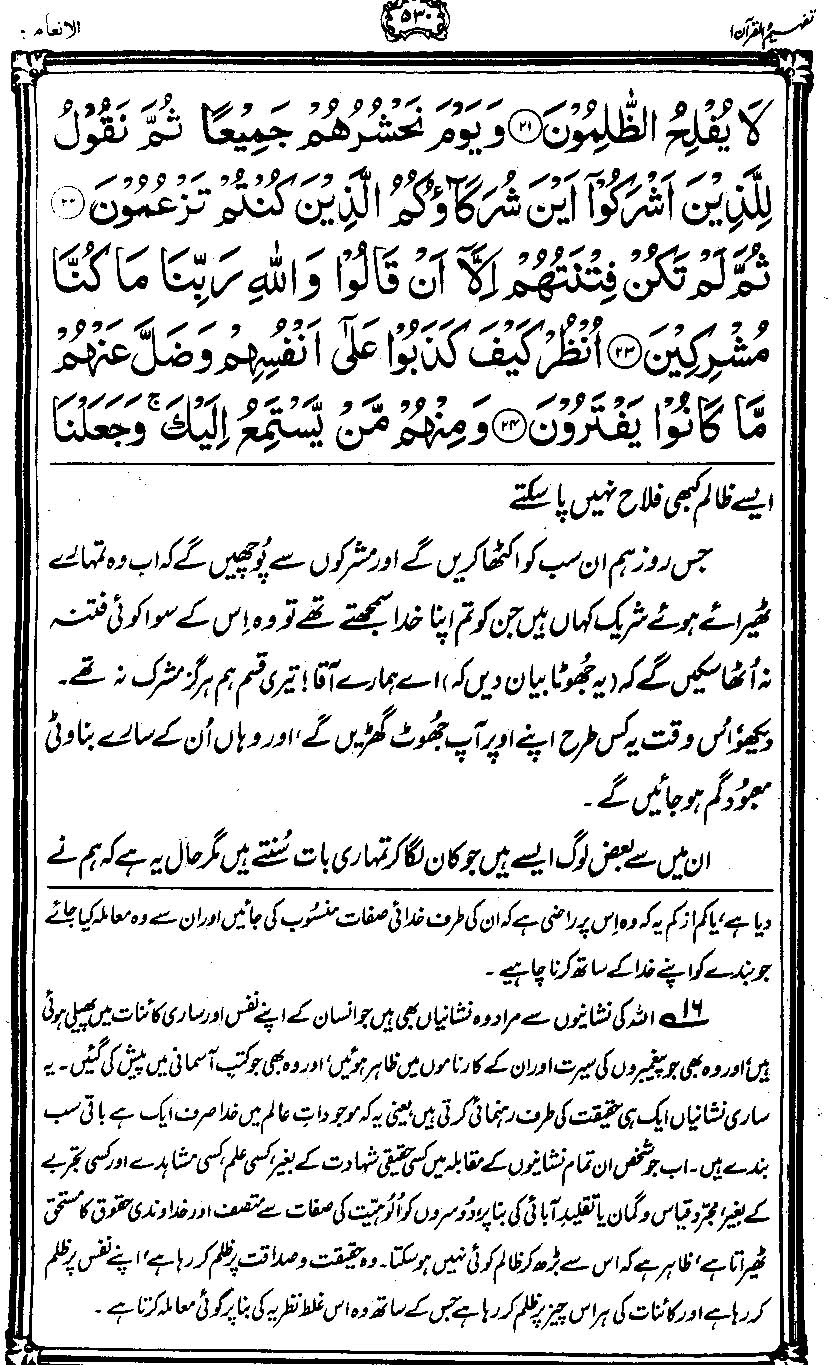 تفہیم القرآن ۱
۵۳۰
الانعام ۶
لَا يُفْلِحُ الظّٰلِمُوْنَ ﴿۲۱﴾ وَيَوْمَ نَحْشُرُهُمْ جَمِيْعًا ثُمَّ نَقُوْلُ
لِلَّذِيْنَ اَشْرَكُوْٓا اَيْنَ شُرَكَآؤُكُمُ الَّذِيْنَ كُنْتُمْ تَزْعُمُوْنَ ﴿۲۲﴾
ثُمَّ لَمْ تَكُنْ فِتْنَتُهُمْ اِلَّآ اَنْ قَالُوْا وَاللّٰهِ رَبِّنَا مَا كُنَّا
مُشْرِكِيْنَ ﴿۲۳﴾ اُنْظُرْ كَيْفَ كَذَبُوْا عَلٰٓى اَنْفُسِهِمْ وَضَلَّ عَنْهُمْ
مَّا كَانُوْا يَفْتَرُوْنَ ﴿۲۴﴾ وَمِنْهُمْ مَّنْ يَّسْتَمِعُ اِلَيْكَ ۚ وَجَعَلْنَا
ایسے ظالم کبھی فلاح نہیں پا سکتے
جس روز ہم ان سب کو اکٹھا کریں گے اور مشرکوں سے پُوچھیں گے کہ اب وہ تمہارے
ٹھیرائے ہوئے شریک کہاں ہیں جن کو تم اپنا خدا سمجھتے تھے تو وہ اِس کے سوا کوئی فتنہ
نہ اُٹھا سکیں گے کہ (یہ جُھوٹا بیان دیں کہ) اے ہمارے آقا! تیری قسم ہم ہرگز مشرک نہ تھے۔
دیکھو، اُس وقت یہ کس طرح اپنے اوپر آپ جُھوٹ گھڑیں گے، اور وہاں اُن کے سارے بناوٹی
معبُود گم ہو جائیں گے۔
ان میں سے بعض لوگ ایسے ہیں جو کان لگا کر تمہاری بات سُنتے ہیں مگر حال یہ ہے کہ ہم نے
دیا ہے، یا کم از کم یہ کہ وہ اِس پر راضی ہے کہ ان کی طرف خدائی صفات منسُوب کی جائیں اور ان سے وہ معاملہ کیا جائے
جو بندے کو اپنے خدا کے ساتھ کرنا چاہیے۔
۱۶؎ اللہ کی نشانیوں سے مراد وہ نشانیاں بھی ہیں جو انسان کے اپنے نفس اور ساری کائنات میں پھیلی ہوئی
ہیں، اور وہ بھی جو پیغمبروں کی سیرت اور ان کے کارناموں میں ظاہر ہوئیں، اور وہ بھی جو کتبِ آسمانی میں پیش کی گئیں۔ یہ
ساری نشانیاں ایک ہی حقیقت کی طرف رہنمائی کرتی ہیں، یعنی یہ کہ موجوداتِ عالم میں خدا صرف ایک ہے باقی سب
بندے ہیں۔ اب جو شخص ان تمام نشانیوں کے مقابلہ میں کسی حقیقی شہادت کے بغیر، کسی علم، کسی مشاہدے اور کسی تجربے
کے بغیر، مجرّد قیاس و گمان یا تقلیدِ آبائی کی بنا پر، دُوسروں کو اُلُوہیّت کی صفات سے متصف اور خداوندی حقوق کا مستحق
ٹھیراتا ہے، ظاہر ہے کہ اس سے بڑھ کر ظالم کوئی نہیں ہو سکتا۔ وہ حقیقت و صداقت پر ظلم کر رہا ہے، اپنے نفس پر ظلم
کر رہا ہے اور کائنات کی ہر اس چیز پر ظلم کر رہا ہے جس کے ساتھ وہ اس غلط نظریہ کی بنا پر کوئی معاملہ کرتا ہے۔